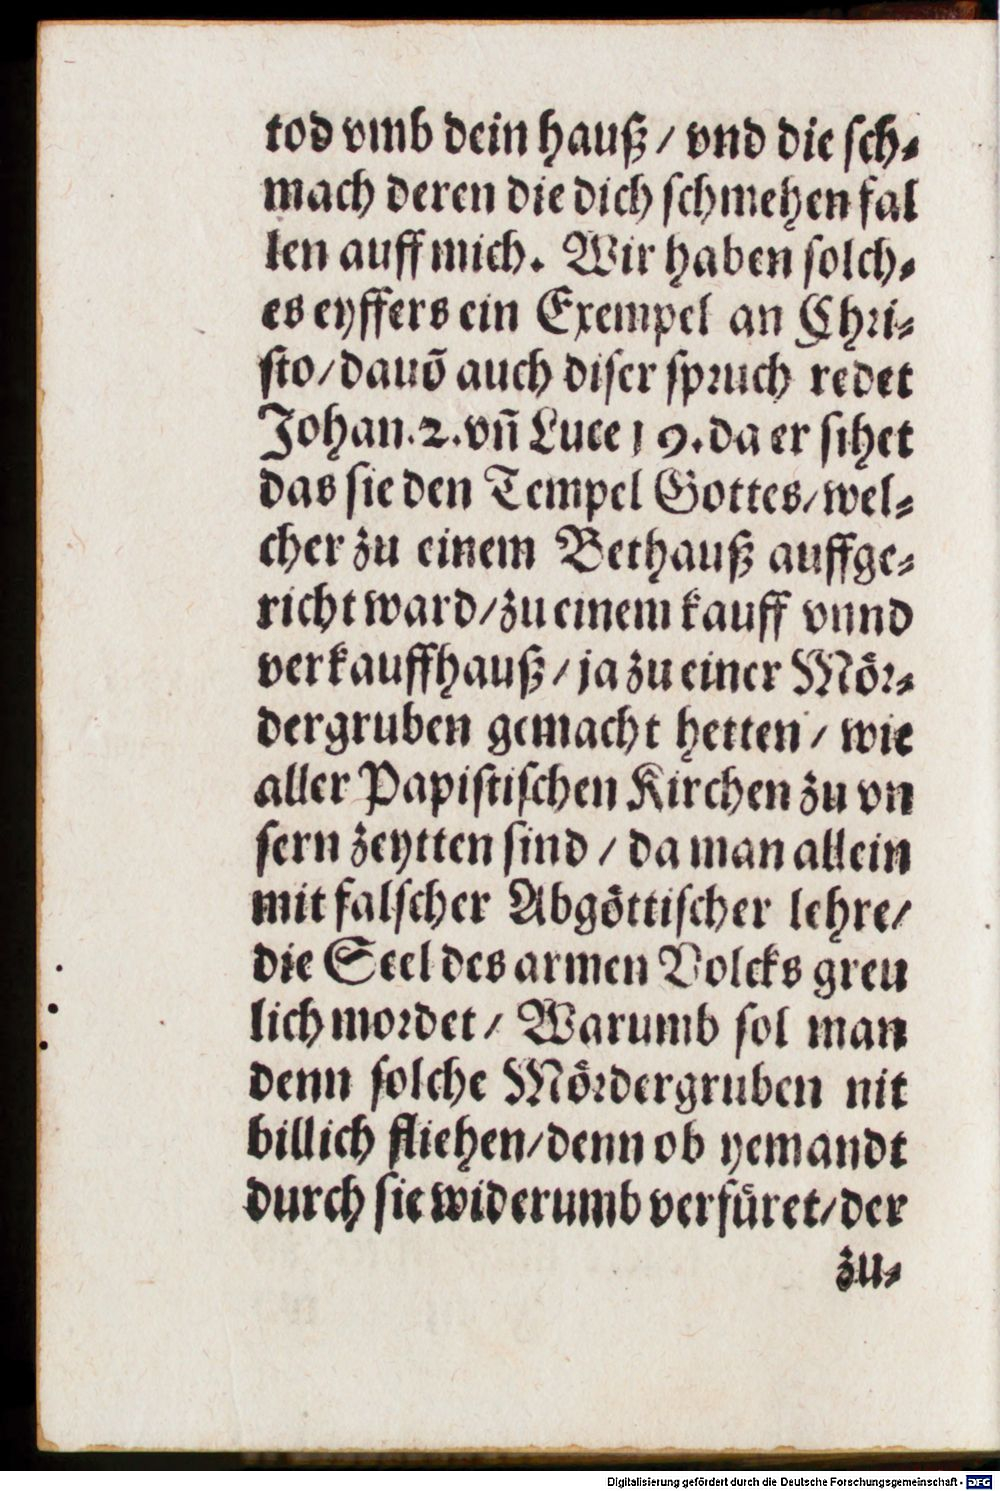 tod vmb dein hauß / vnd die sch⸗
mach deren die dich schmehen fal
len auff mich. Wir haben solch⸗
es eyffers ein Exempel an Chri⸗
sto/dauõ auch diser spruch redet
Johan.2.vñ Luce 19.da er sihet
das sie den Tempel Gottes/wel⸗
cher zu einem Bethauß auffge⸗
richt ward/zu einem kauff vnnd
verkauffhauß/ ja zu einer Mör⸗
dergruben gemacht hetten / wie
aller Papistischen Kirchen zu vn
sern zeytten sind / da man allein
mit falscher Abgöttischer lehre/
die Seel des armen Volcks greu
lich mordet / Warumb sol man
denn solche Mördergruben nit
billich fliehen/denn ob yemandt
durch sie widerumb verfüret/der
zu⸗
Digitalisierung gefördert durch die Deutsche Forschungsgemeinschaft - DFG